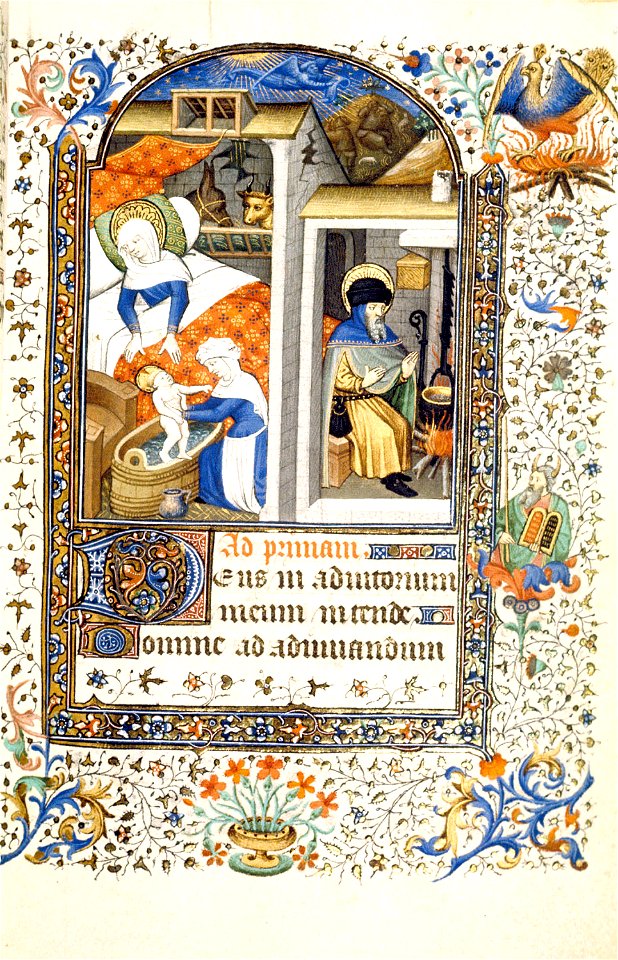 Ad primam.
DEus in adiutorium
meum intende.
Domine ad adiuuandum